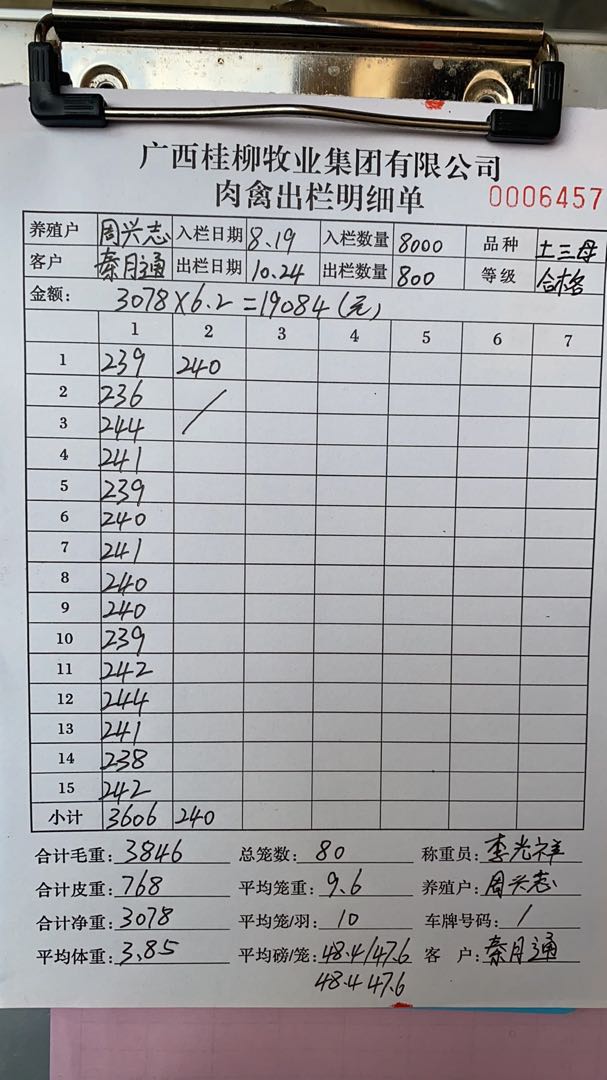 广西桂柳牧业集团有限公司
肉禽出栏明细单 0006457
养殖户 周兴志 入栏日期 8.19 入栏数量 8000 品种 土三母
客户 秦月通 出栏日期 10.24 出栏数量 800 等级 合格
金额: 3078×6.2=19084(元)
1 2 3 4 5 6 7
1 239 240
2 236
3 244
4 241
5 239
6 240
7 241
8 240
9 240
10 239
11 242
12 244
13 241
14 238
15 242
小计 3606 240
合计毛重: 3846 总笼数: 80 称重员: 李光祥
合计皮重: 768 平均笼重: 9.6 养殖户: 周兴志
合计净重: 3078 平均笼/羽: 10 车牌号码: /
平均体重: 3.85 平均磅/笼: 48.4/47.6 客户: 秦月通
48.4 47.6